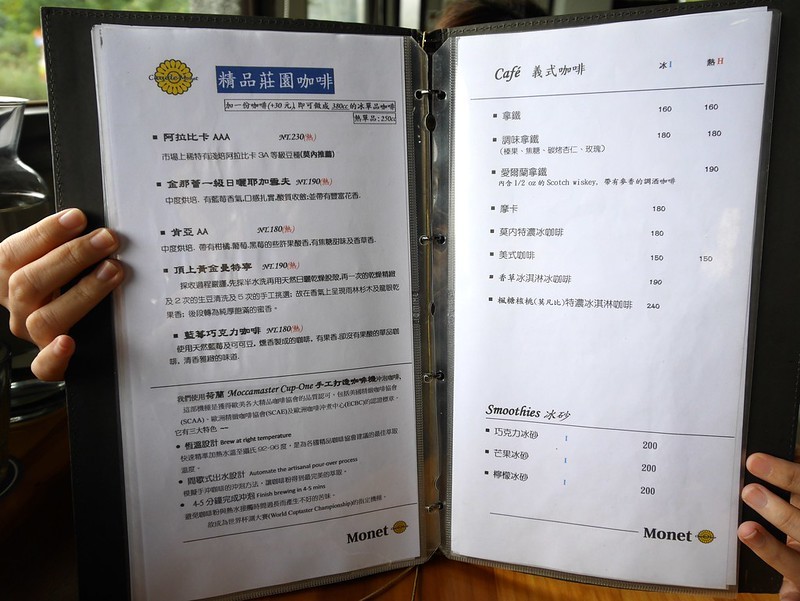 精品莊園咖啡
加一份咖啡(+30元),即可做成 380cc 的冰單品咖啡
熱單品: 250cc
阿拉比卡 AAA NT.230(熱)
市場上稀特有淺焙阿拉比卡 3A 等級豆種(莫內推薦)
金那督一級日曬耶加雪夫 NT.190(熱)
中度烘焙. 有藍莓香氣,口感扎實,酸質收斂;並帶有豐富花香.
肯亞 AA NT.180(熱)
中度烘焙. 帶有柑橘,葡萄,黑莓的些許果酸香,有焦糖甜味及香草香.
頂上黃金曼特寧 NT.190(熱)
採收過程嚴謹,先採半水洗再用天然日曬乾燥脫殼,再一次的乾燥精緻
及2次的生豆清洗及5次的手工挑選; 故在香氣上呈現雨林杉木及龍眼乾
果香; 後段轉為純厚飽滿的蜜香。
藍莓巧克力咖啡 NT.180(熱)
使用天然藍莓及可可豆, 燻香製成的咖啡, 有果香,卻沒有果酸的單品咖
啡, 清香雅緻的味道.
我們使用荷蘭 Moccamaster Cup-One 手工打造咖啡機沖泡咖啡,
這部機種是獲得歐美各大精品咖啡協會的品質認可, 包括美國精緻咖啡協會
(SCAA)、歐洲精緻咖啡協會(SCAE)及歐洲咖啡沖煮中心(ECBC)的認證標章。
它有三大特色 —
恆溫設計 Brew at right temperature
快速精準加熱水溫至攝氏 92-96 度, 是為各種精品咖啡協會建議的最佳萃取
溫度。
間歇式出水設計 Automate the artisanal pour-over process
模擬手沖咖啡的沖泡方法, 讓咖啡粉得到最完美的萃取。
4-5 分鐘完成沖泡 Finish brewing in 4-5 mins
避免咖啡粉與熱水接觸時間過長而產生不好的苦味。
故成為世界杯測大賽(World Cuptaster Championship)的指定機種。
Monet
Café 義式咖啡 冰I 熱H
拿鐵 160 160
調味拿鐵 180 180
(榛果、焦糖、碳烤杏仁、玫瑰)
愛爾蘭拿鐵 190
內含 1/2 oz 的 Scotch wiskey, 帶有麥香的調酒咖啡
摩卡 180
莫內特濃冰咖啡 180
美式咖啡 150 150
香草冰淇淋冰咖啡 190
楓糖核桃(莫凡比)特濃冰淇淋咖啡 240
Smoothies 冰砂
巧克力冰砂 I 200
芒果冰砂 I 200
檸檬冰砂 I 200
Monet